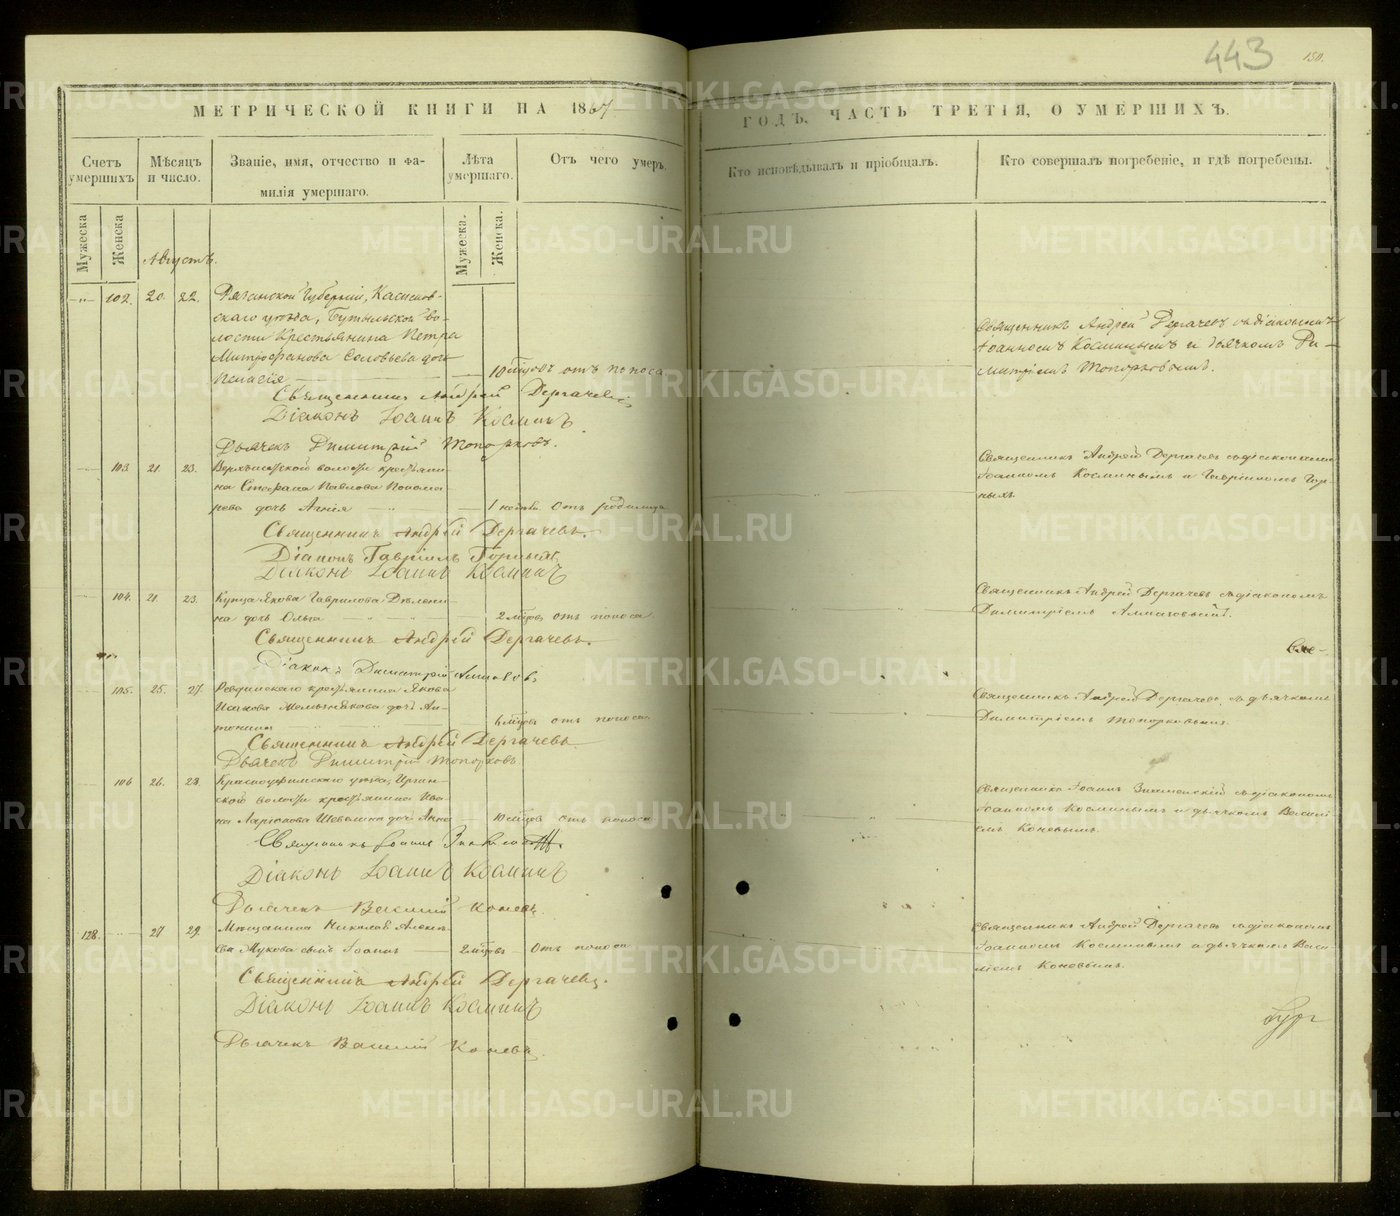 443
150.
МЕТРИЧЕСКОЙ КНИГИ НА 1867
ГОДЪ, ЧАСТЬ ТРЕТІЯ, О УМЕРШИХЪ.
Счетъ умершихъ
Мѣсяцъ и число.
Званіе, имя, отчество и фамилія умершаго.
Лѣта умершаго.
Отъ чего умеръ.
Кто исповѣдывалъ и пріобщалъ.
Кто совершалъ погребеніе, и гдѣ погребены.
Мужеска
Женска
Мужеска.
Женска.
Августъ.
102. 20. 22. Рязанской Губерніи, Касимов-
скаго уѣзда, во-
лости Крестьянина Петра
Митрофанова Соловьева дочь
10 мѣцовъ отъ поноса
Священникъ Андрей Дергачевъ
Діаконъ Іоаннъ Косминъ
Дьячекъ Димитрій Топорковъ.
Священникъ Андрей Дергачевъ съ діакономъ
Іоанномъ Косминымъ и дьячкомъ Ди-
митріемъ Топорковымъ.
103. 21. 23. волости крестьяни-
на Стефана Павлова Понома-
рева дочь Агнія 1 отъ родимца
Священникъ Андрей Дергачевъ.
Діаконъ Гавріилъ Горныхъ
Діаконъ Іоаннъ Косминъ
Священникъ Андрей Дергачевъ съ діаконами
Іоанномъ Косминымъ и Гавріиломъ Гор-
ныхъ
104. 21. 23. Купца Якова Гаврилова
на дочь Ольга 2 мѣцовъ отъ поноса
Священникъ Андрей Дергачевъ.
Діаконъ Димитрій
Священникъ Андрей Дергачевъ съ діакономъ
Димитріемъ
105. 25. 27. Ревдинскаго крестьянина Якова
Исакова Мельникова дочь Ан-
тонина 6 мѣцовъ отъ поноса
Священникъ Андрей Дергачевъ
Дьячекъ Димитрій Топорковъ.
Священникъ Андрей Дергачевъ съ дьячкомъ
Димитріемъ Топорковымъ.
106 26. 28. Красноуфимскаго уѣзда, Иргин-
ской волости крестьянина Ива-
на Ларіонова Шевелина дочь Анна 10 мѣцовъ отъ поноса
Священникъ Іоаннъ Знаменскій
Діаконъ Іоаннъ Косминъ
Дьячекъ Василій Коневъ.
Священникъ Іоаннъ Знаменскій съ діакономъ
Іоанномъ Косминымъ и дьячкомъ Василі-
емъ Коневымъ.
128. 27 29. Мѣщанина Николая Алексѣ-
ева Мукова сынъ Іоаннъ 2 мѣцовъ отъ поноса
Священникъ Андрей Дергачевъ.
Діаконъ Іоаннъ Косминъ
Дьячекъ Василій Коневъ.
Священникъ Андрей Дергачевъ съ діакономъ
Іоанномъ Косминымъ и дьячкомъ Васи-
ліемъ Коневымъ.
METRIKI.GASO-URAL.RU